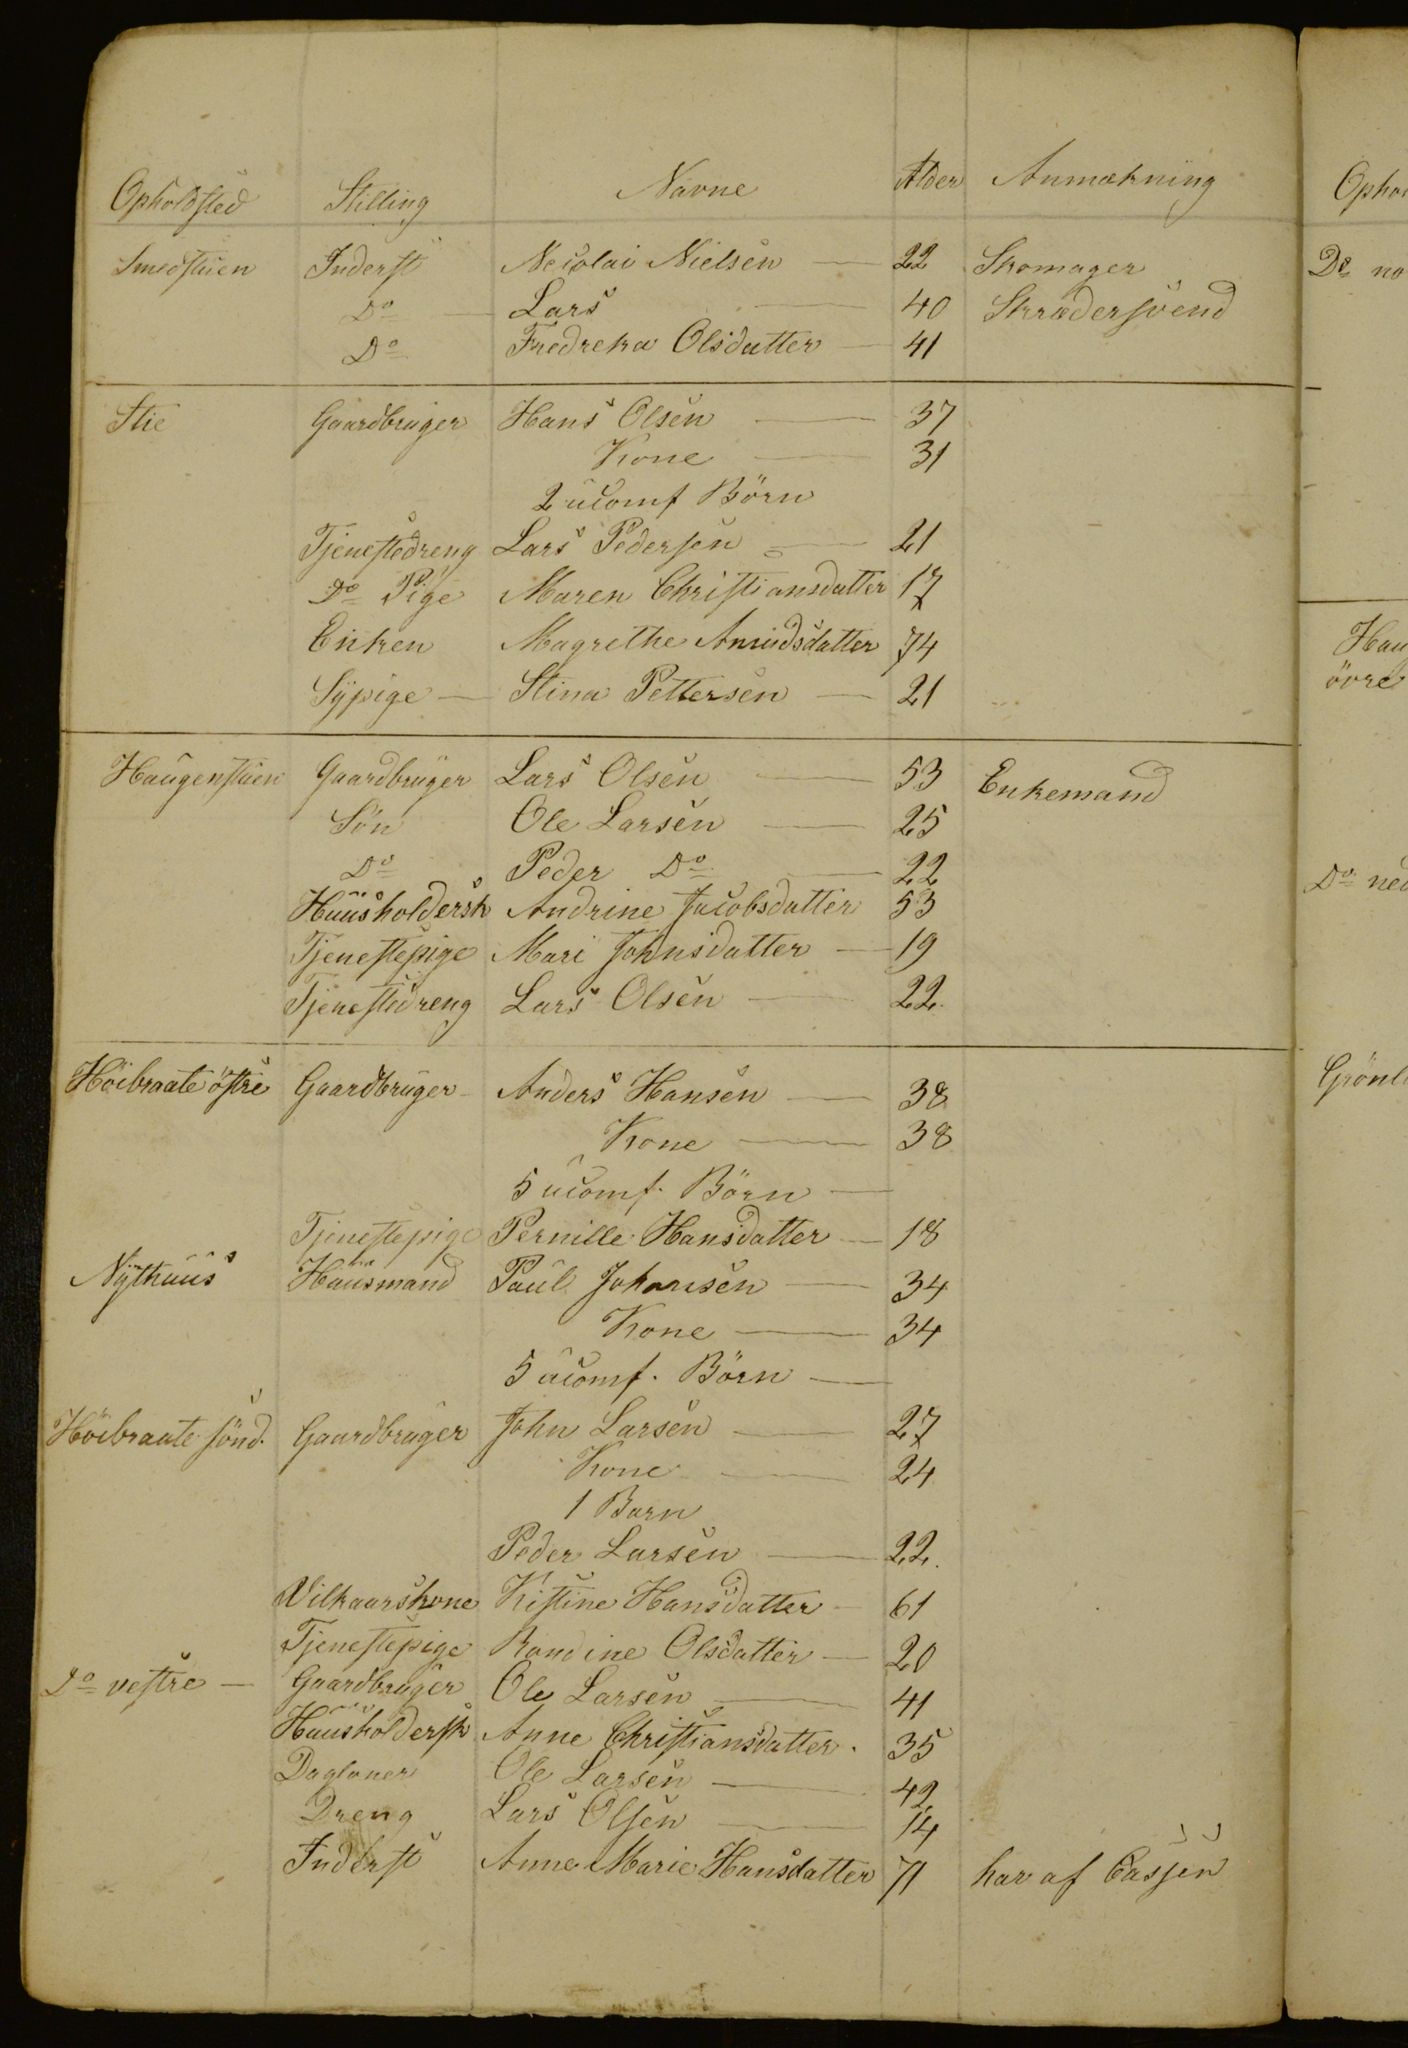 Opholdsted Stilling Navne Alder Anmærkning
Smedstuen Inderst Necolai Nielsen — 22 Skomager
Do Lars — 40 Skrædersvend
Do Fredreka Olsdatter — 41
Stie Gaardbruger Hans Olsen — 37
Kone — 31
2 uconf Børn
Tjenestedreng Lars Pedersen — 21
Do Pige Maren Christiansdatter 17
Enken Magrethe Amudsdatter 74
Sÿpige — Stina Pettersen — 21
Haugenstuen Gaardbruger Lars Olsen — 53 Enkemand
Søn Ole Larsen — 25
Do Peder Do — 22
Huusholdersk Andrine Jacobsdatter 53
Tjenestepige Mari Johnsdatter — 19
Tjenestedreng Lars Olsen — 22.
Höibraate östre Gaardbruger Anders Hansen — 38
Kone — 38
5 uconf. Börn —
Tjenestepige Pernille Hansdatter — 18
Nÿthuus Huusmand Paul Johansen — 34
Kone — 34
5 uconf. Börn —
Höibraate sönd. Gaardbruger John Larsen — 27
Kone — 24
1 Barn
Peder Larsen — 22.
Vilkaarskone Kistine Hansdatter — 61
Tjenestepige Randine Olsdatter — 20
Do vestre — Gaardbruger Ole Larsen — 41
Huusholdersk Anne Christiansdatter. 35
Dagloner Ole Larsen — 42
Dreng Lars Olsen — 14
Inderst Anne Marie Hansdatter 71 har af Cassen
Ophol
Do no
Hau
övre
Do ned
Grönl